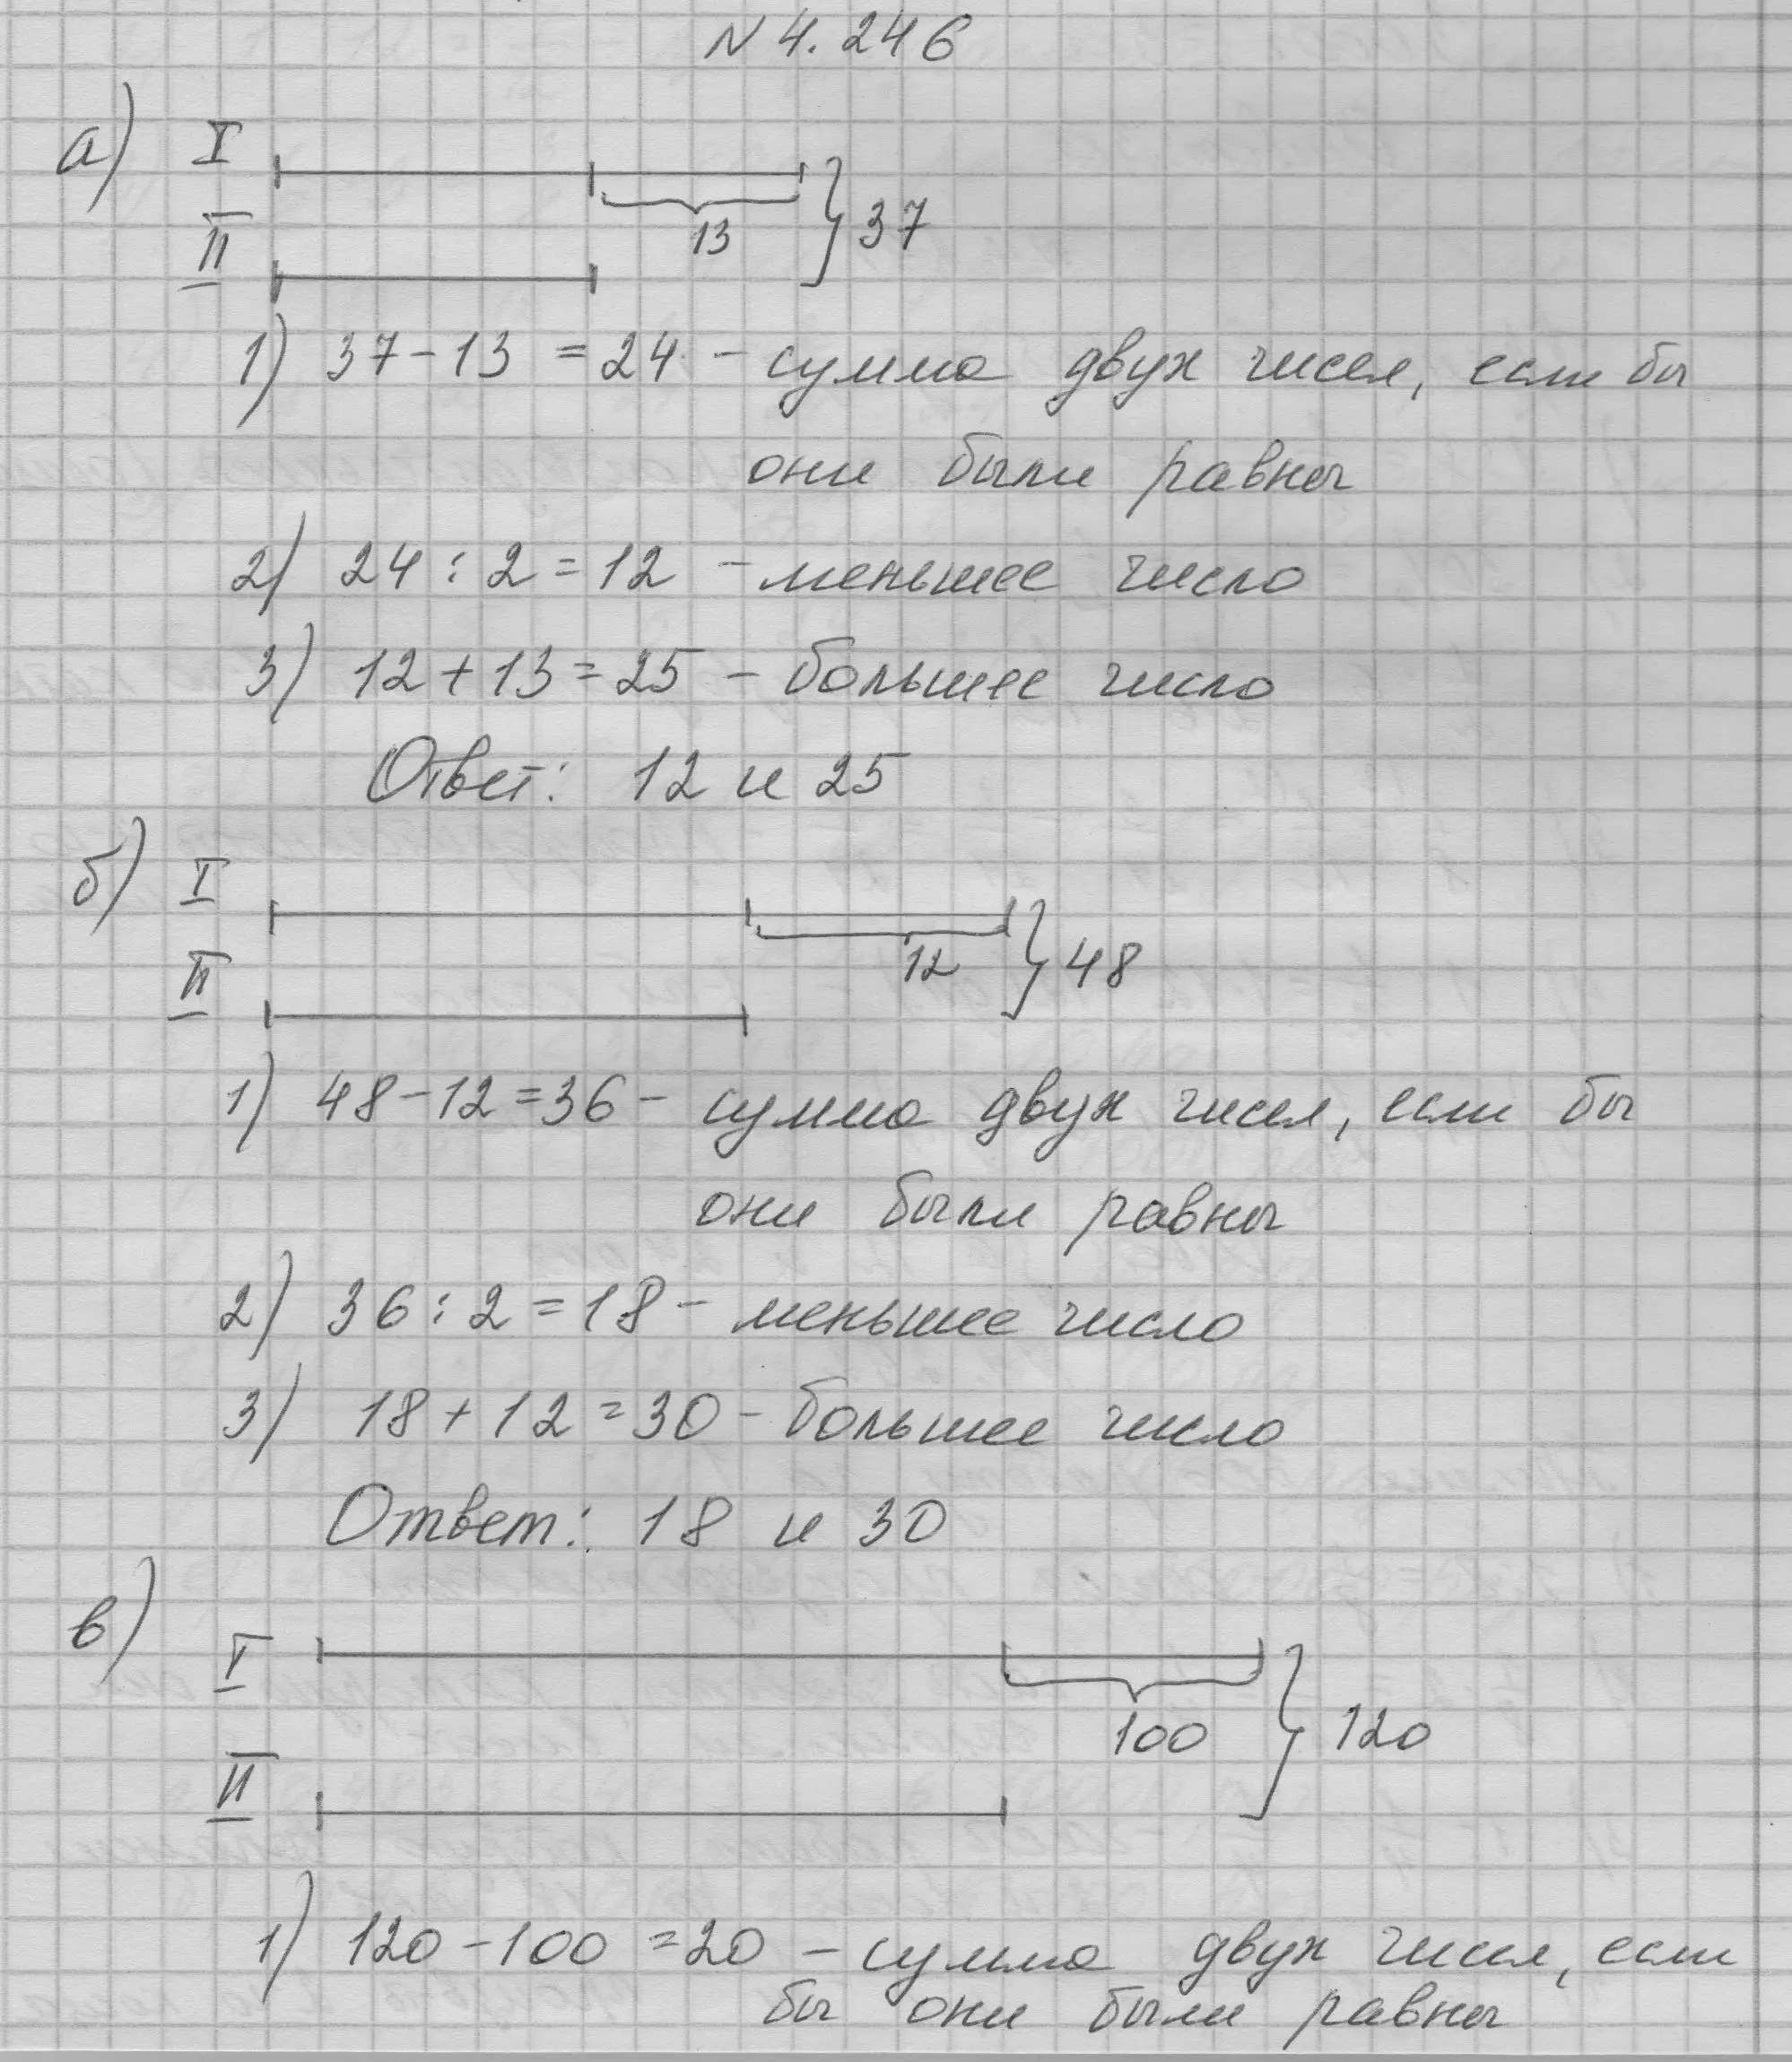 N 4.246
а) I
13
37
II
1) 37-13 = 24 - сумма двух чисел, если бы
они были равны
2) 24 : 2 = 12 - меньшее число
3) 12 + 13 = 25 - большее число
Ответ: 12 и 25
б) I
12
48
II
1) 48-12 = 36 - сумма двух чисел, если бы
они были равны
2) 36 : 2 = 18 - меньшее число
3) 18 + 12 = 30 - большее число
Ответ: 18 и 30
в) I
100
120
II
1) 120 - 100 = 20 - сумма двух чисел, если
бы они были равны